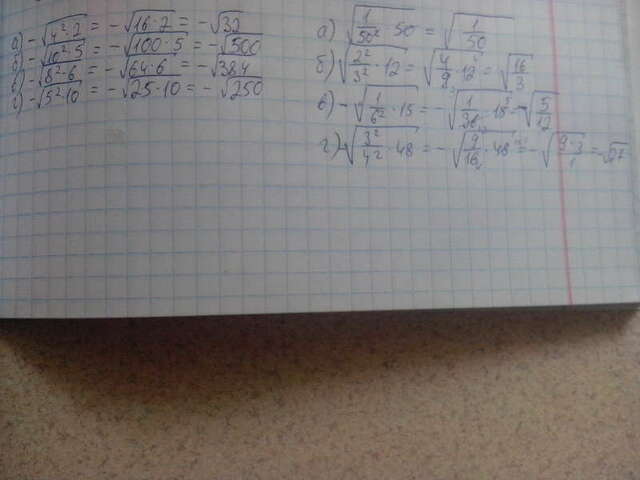 а) -√4²·2 = -√16·2 = -√32
б) -√10²·5 = -√100·5 = -√500
в) -√8²·6 = -√64·6 = -√384
г) -√5²·10 = -√25·10 = -√250
а) √1/50²·50 = √1/50
б) √2²/3²·12 = √4/9·12 = √16/3
в) -√1/6²·15 = -√1/36·15 = -√5/12
г) -√3²/4²·48 = -√9/16·48 = -√9·3/1 = -√27